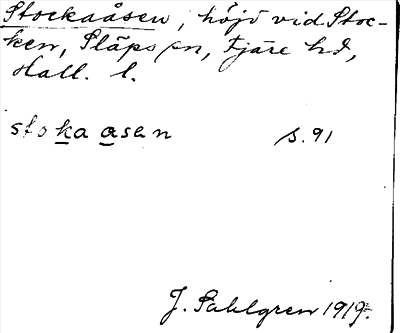 Stockaåsen, höjd vid Stoc-
ken, Släps sn, Fjäre hd,
Hall. l.
stoka asen s. 91
J. Sahlgren 1919.